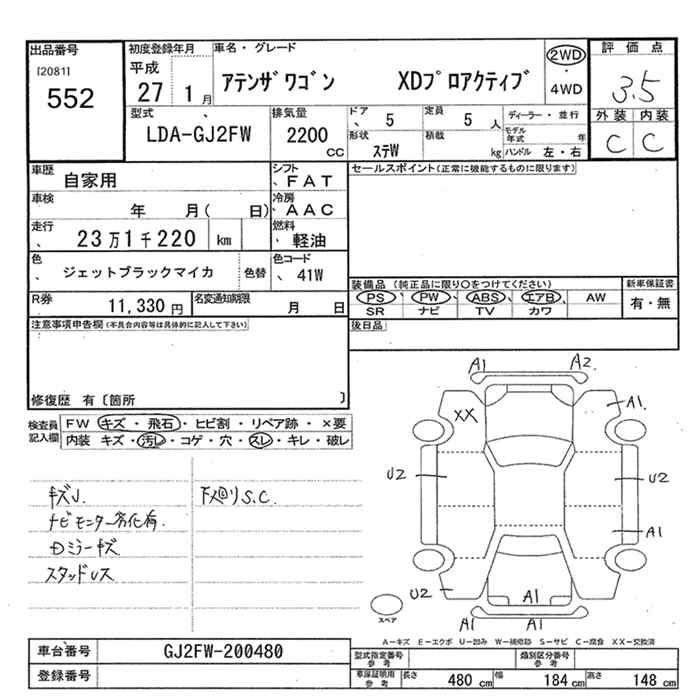 出品番号 初度登録年月 車名・グレード 2WD 評価点
[2081] 平成
552 27 1月 アテンザワゴン XDプロアクティブ ・ 4WD 3.5
型式 排気量 ドア 定員 ディーラー・並行 外装 内装
LDA-GJ2FW 2200 CC 、 5 5 人 モデル年式 年 C C
形状 ステW 積載 kg ハンドル 左・右
車歴 自家用 シフト 、FAT セールスポイント(正常に機能するものに限ります)
車検 年 月( 日) 冷房 、AAC
走行 、 23万1千220 km 燃料 、 軽油
色 、 ジェットブラックマイカ 色替 色コード 、 41W
装備品 (純正品に限り○をつけてください) 新車保証書
R券 11,330円 名変通知期限 月 日 PS PW ABS エアB AW 有・無
SR ナビ TV カワ
注意事項申告欄(本員台内容等は具体的に記入して下さい) 後日品
修復歴 有〔箇所 〕
検査員記入欄 FW キズ・飛石・ヒビ割・リペア跡・×要
内装 キズ・汚レ・コゲ・穴・スレ・キレ・破レ
A1 A2
XX A1
U2 U2
A1
U2 A1
A1 A1
スペア
キズU. 下廻りS.C.
ナビモニター劣化有.
Dミラーキズ
スタッドレス
A-キズ E-エクボ U-凹み W-補修跡 S-サビ C-腐食 XX-交換済
車台番号 GJ2FW-200480 型式指定番号 参考 類別区分番号 参考
登録番号 車庫証明用 参考 長さ 480 cm 幅 184 cm 高さ 148 cm